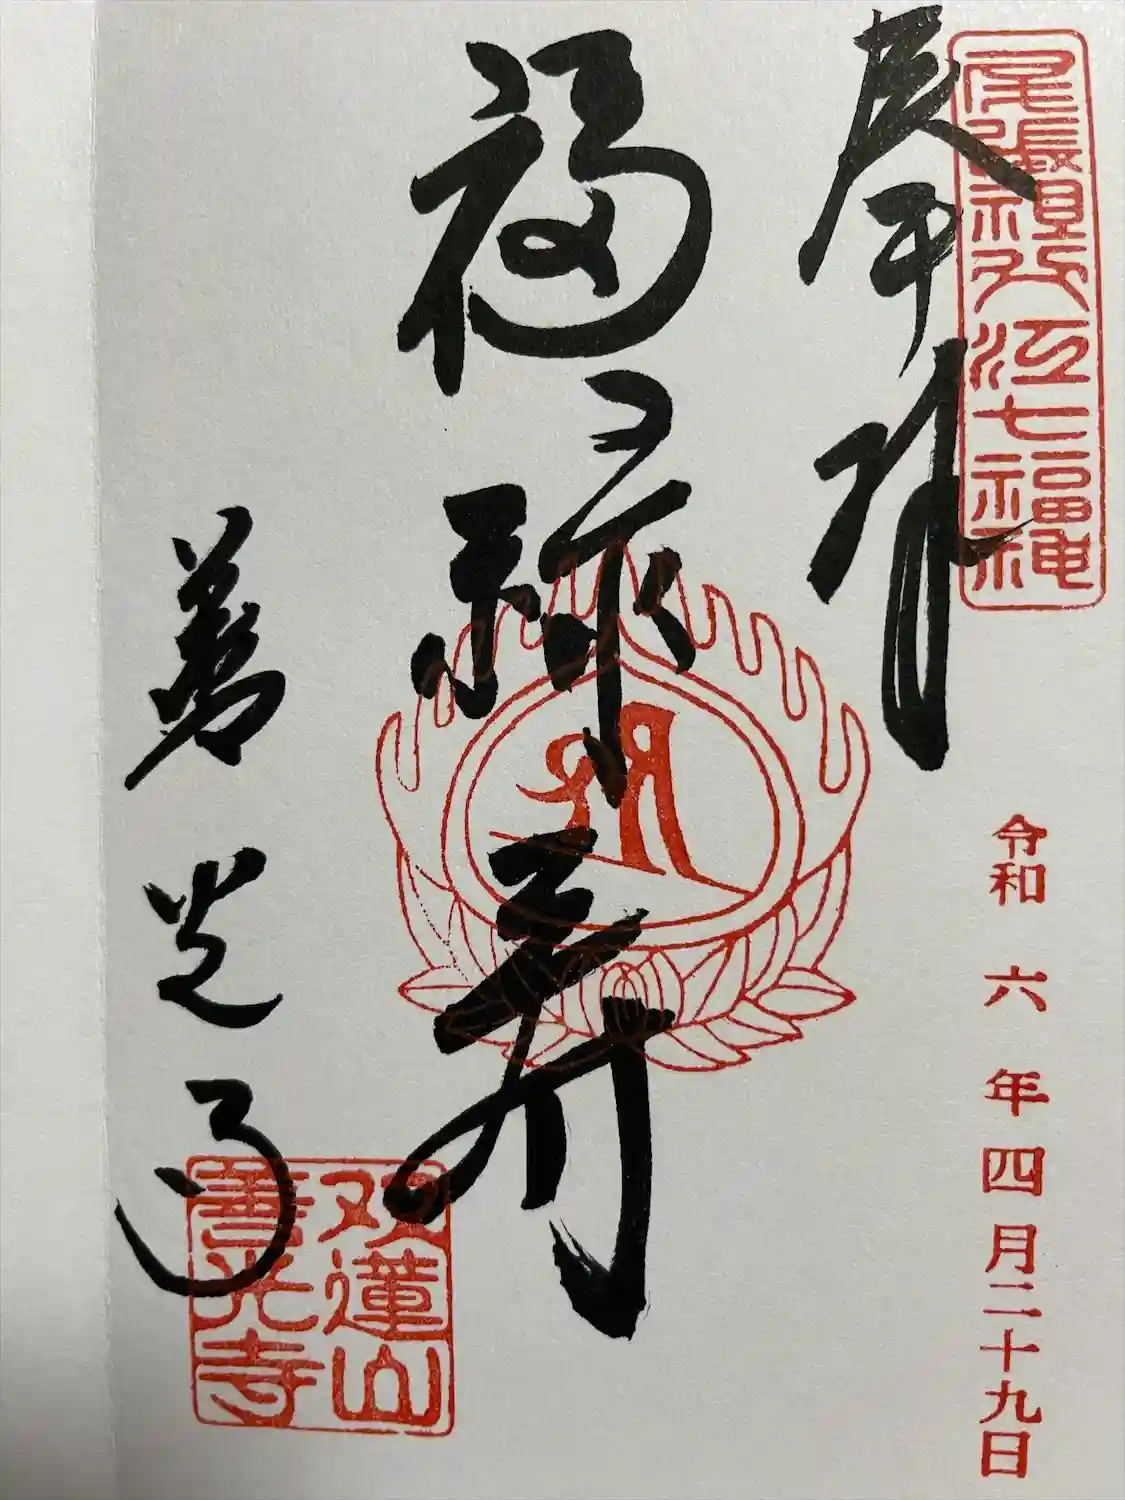 尾張祖父江七福神
奉拝
令和六年四月二十九日
福禄寿
善光寺
双蓮山
善光寺